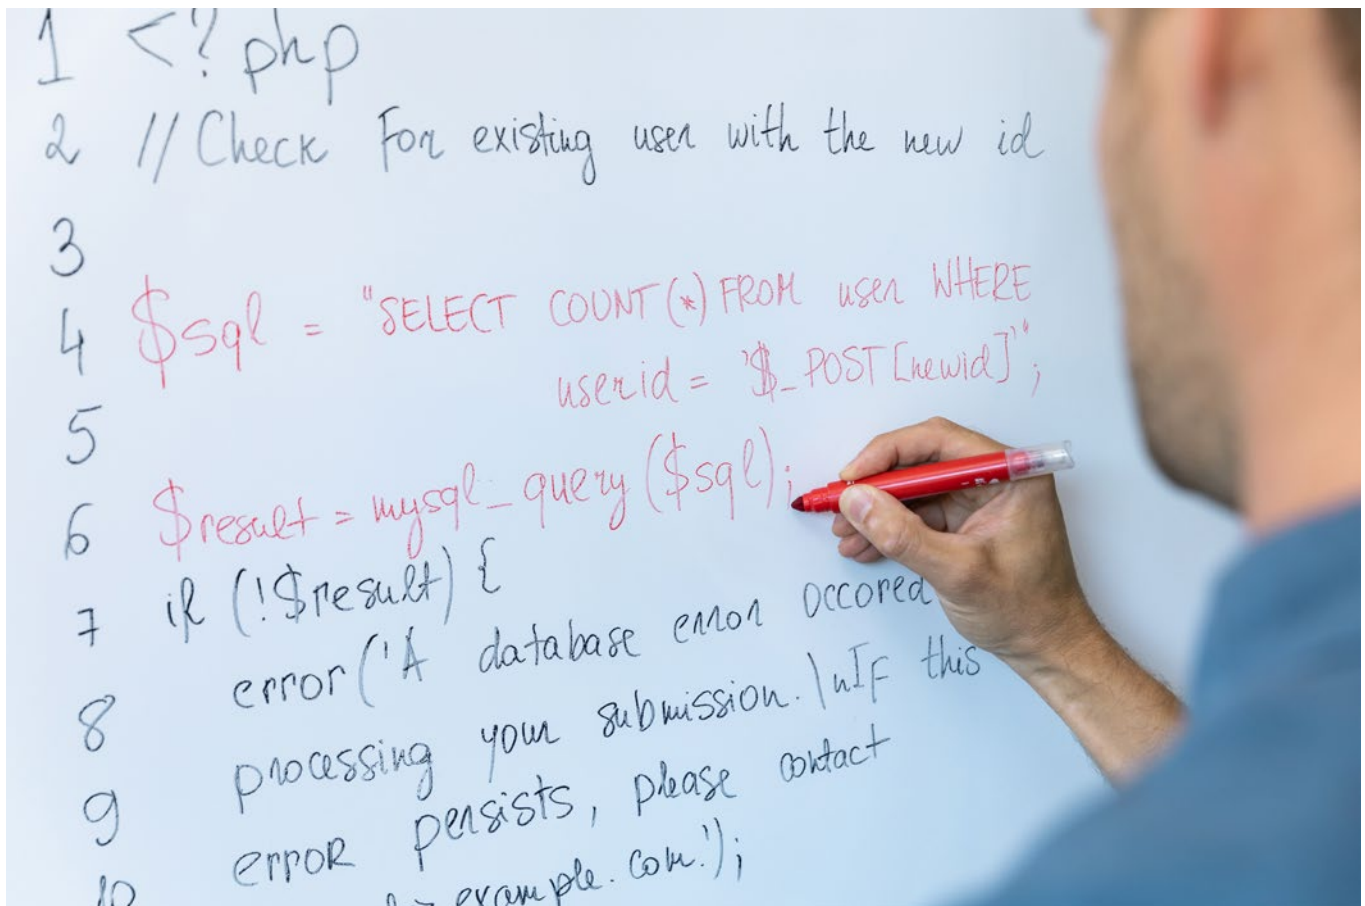 1 <?php
2 // Check For existing user with the new id
3
4 $sql = "SELECT COUNT(*) FROM user WHERE
userid = '$_POST[newid]'";
5
6 $result = mysql_query($sql);
7 if (!$result) {
8 error('A database error occored
9 processing your submission.\nIF this
10 error persists, please contact
example.com.');